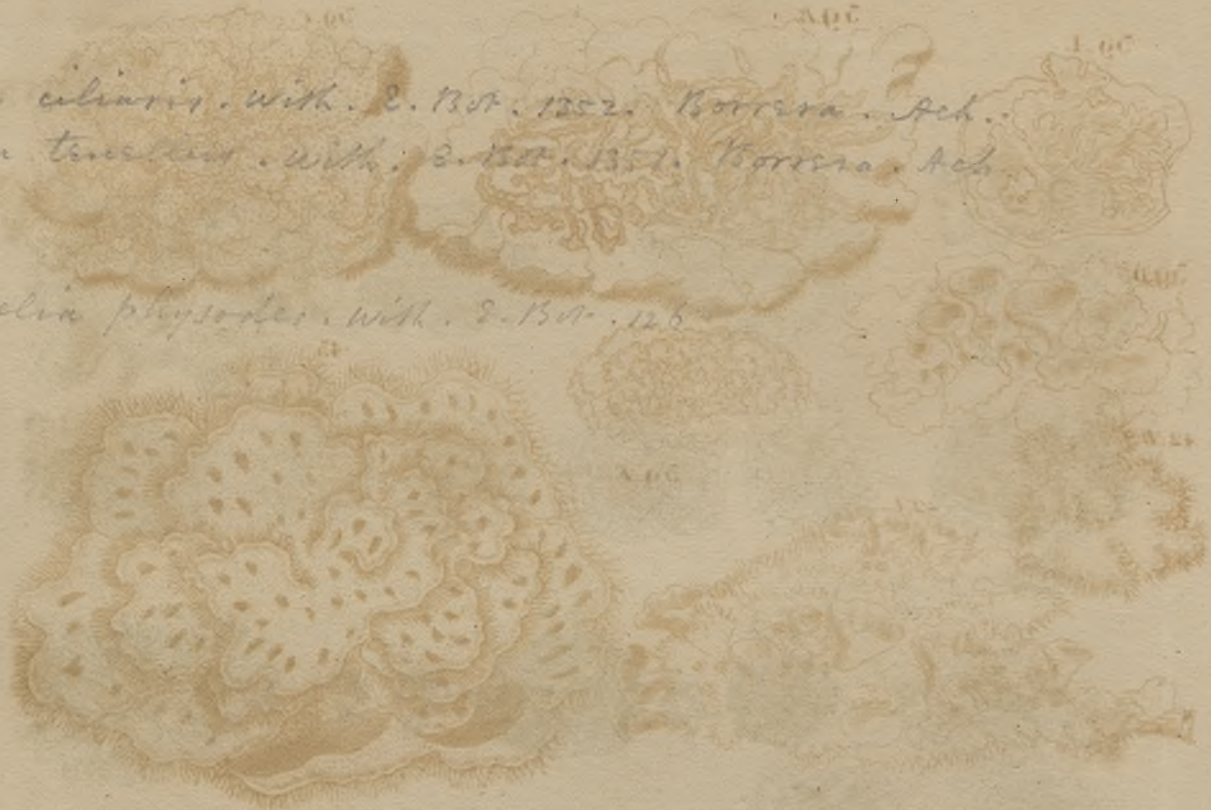 ciliaris. With. E. Bot. 1352. Borrera. Ach.
tenellus. With. E. Bot. 1351. Borrera. Ach
elia physodes. With. E. Bot. 126